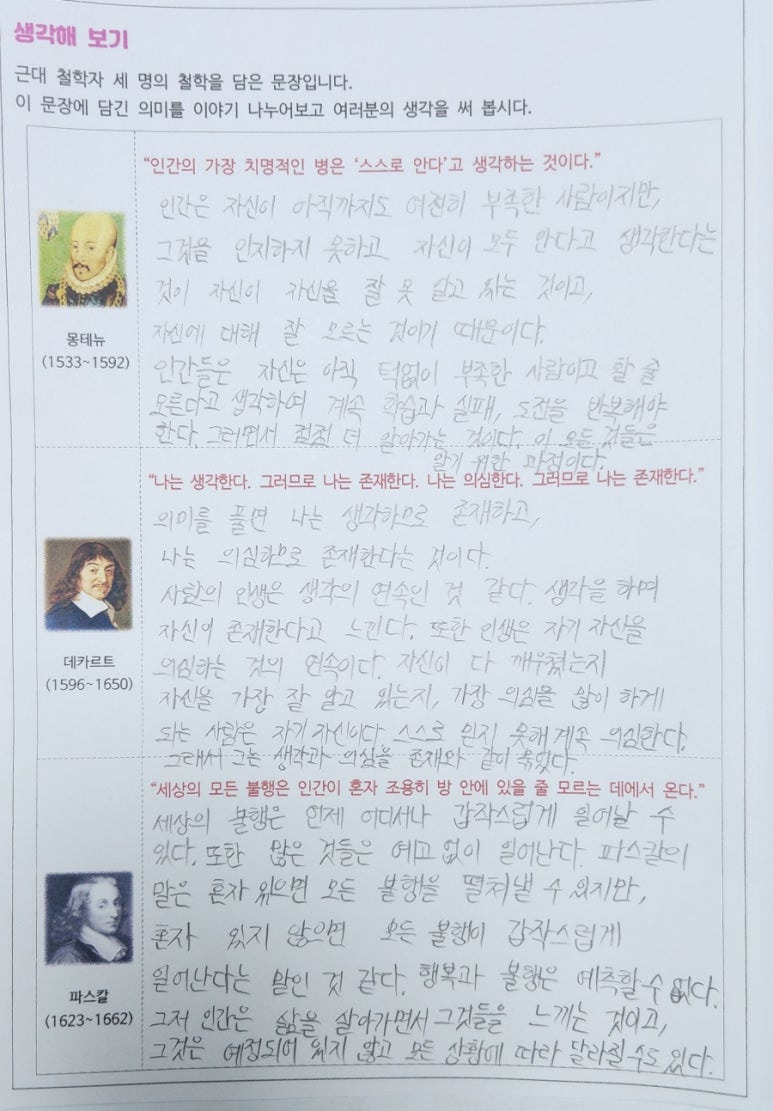 생각해 보기
근대 철학자 세 명의 철학을 담은 문장입니다.
이 문장에 담긴 의미를 이야기 나누어보고 여러분의 생각을 써 봅시다.
“인간의 가장 치명적인 병은 ‘스스로 안다’고 생각하는 것이다.”
인간은 자신이 아직까지도 여전히 부족한 사람이지만,
그것을 인지하지 못하고 자신이 모두 안다고 생각한다는
것이 자신이 자신을 잘 못 알고 있는 것이고,
자신에 대해 잘 모르는 것이기 때문이다.
인간들은 자신은 아직 턱없이 부족한 사람이고 할 줄
모른다고 생각하여 계속 학습과 실패, 도전을 반복해야
한다. 그러면서 점점 더 알아가는 것이다. 이 모든 것들은
알기 위한 과정이다.
몽테뉴
(1533~1592)
“나는 생각한다. 그러므로 나는 존재한다. 나는 의심한다. 그러므로 나는 존재한다.”
의미를 풀면 나는 생각하므로 존재하고,
나는 의심하므로 존재한다는 것이다.
사람의 인생은 생각의 연속인 것 같다. 생각을 하며
자신이 존재한다고 느낀다. 또한 인생은 자기 자신을
의심하는 것의 연속이다. 자신이 다 깨우쳤는지
자신을 가장 잘 알고 있는지, 가장 의심을 많이 하게
되는 사람은 자기 자신이다. 스스로 믿지 못해 계속 의심한다.
그래서 그는 생각과 의심을 존재와 같이 묶었다.
데카르트
(1596~1650)
“세상의 모든 불행은 인간이 혼자 조용히 방 안에 있을 줄 모르는 데에서 온다.”
세상의 불행은 언제 어디서나 갑작스럽게 일어날 수
있다. 또한 많은 것들은 예고 없이 일어난다. 파스칼의
말은 혼자 있으면 모든 불행을 떨쳐낼 수 있지만,
혼자 있지 않으면 모든 불행이 갑작스럽게
일어난다는 말인 것 같다. 행복과 불행은 예측할 수 없다.
그저 인간은 삶을 살아가면서 그것들을 느끼는 것이고,
그것은 예정되어 있지 않고 모든 상황에 따라 달라질 수도 있다.
파스칼
(1623~1662)